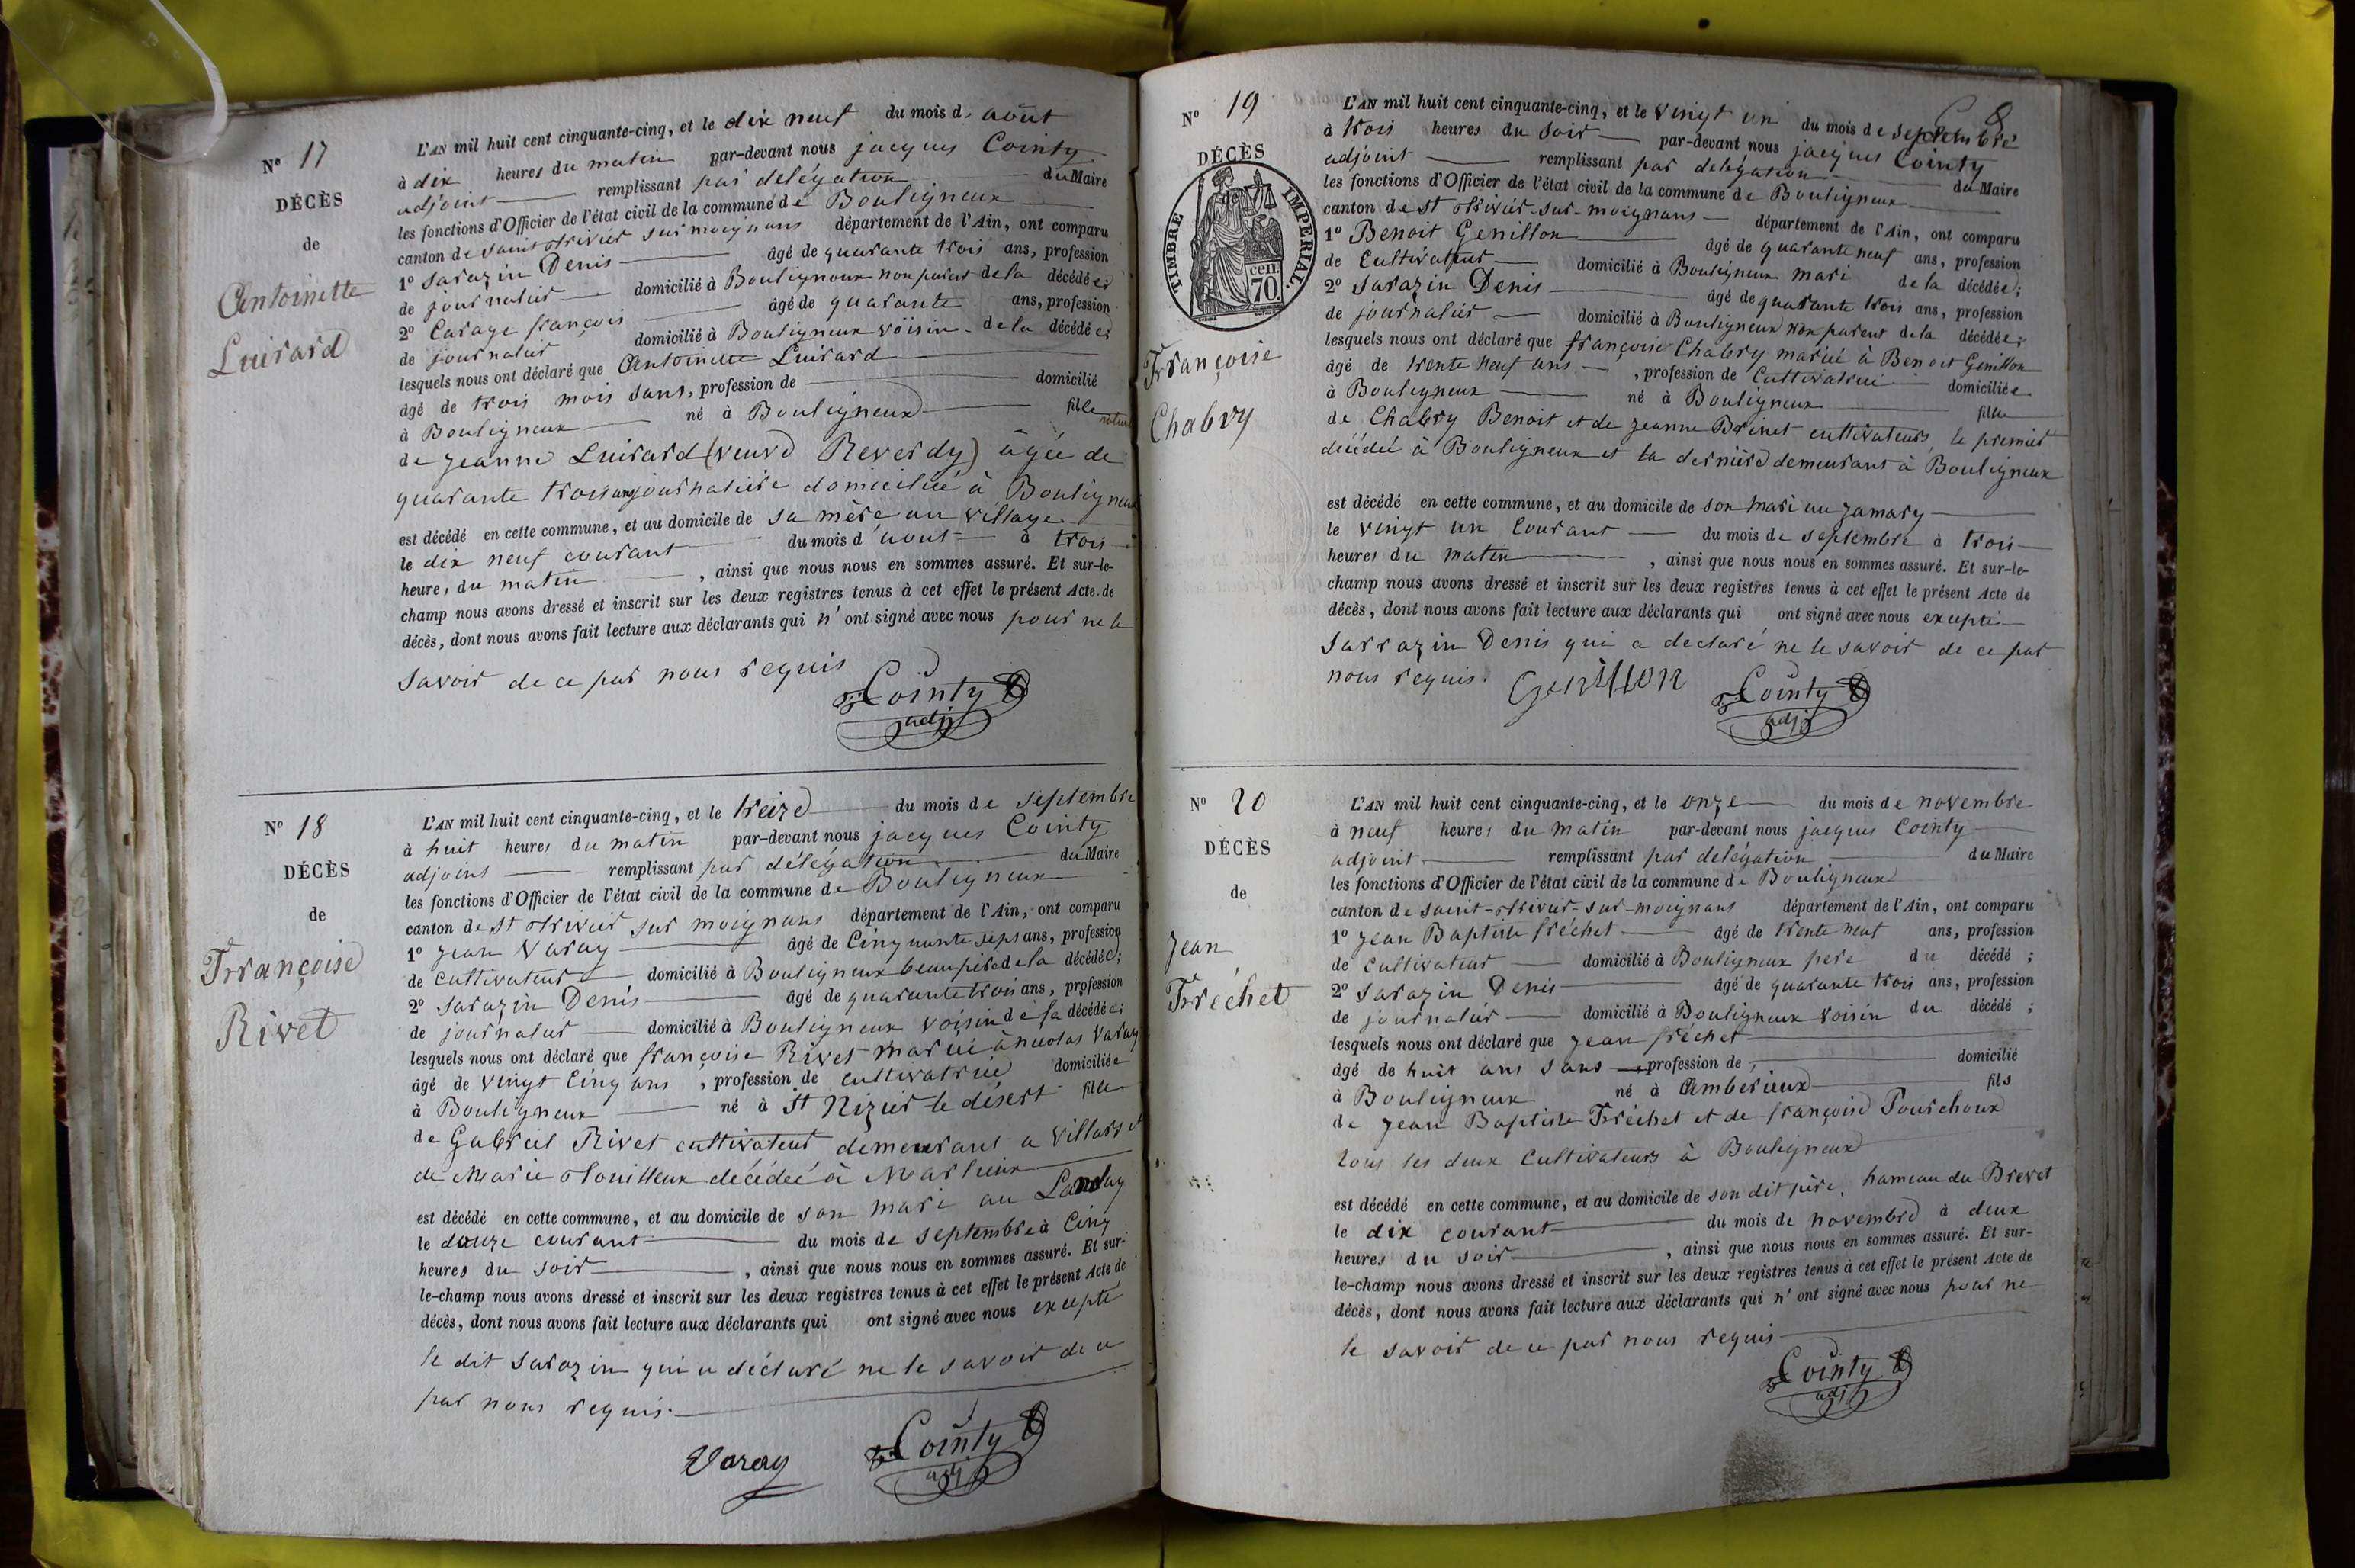 N° 17
DÉCÈS
de
Antoinette
Luirard
L'AN mil huit cent cinquante-cinq, et le dix neuf du mois d' août
à dix heures du matin par-devant nous jacques Cointy
adjoint remplissant par delégation du Maire
les fonctions d'Officier de l'état civil de la commune de Bouligneux
canton de saint trivier sur moignans département de l'Ain, ont comparu
1° Sarazin Denis âgé de quarante trois ans, profession
de journalier domicilié à Bouligneux non parent de la décédée;
2° Carage françois âgé de quarante ans, profession
de journalier domicilié à Bouligneux voisin de la décédée;
lesquels nous ont déclaré que Antoinette Luirard
âgé de trois mois sans, profession de domicilié
à Bouligneux né à Bouligneux fille
de jeanne Luirard (veuve Reverdy) âgée de
quarante trois ans journalière domiciliée à Bouligneux
est décédé en cette commune, et au domicile de sa mère au village
le dix neuf courant du mois d'aout à trois
heures du matin, ainsi que nous nous en sommes assuré. Et sur-le-
champ nous avons dressé et inscrit sur les deux registres tenus à cet effet le présent Acte de
décès, dont nous avons fait lecture aux déclarants qui n'ont signé avec nous pour ne le
savoir de ce par nous requis
Cointy
adj
N° 18
DÉCÈS
de
Françoise
Rivet
L'AN mil huit cent cinquante-cinq, et le treize du mois de septembre
à huit heures du matin par-devant nous jacques Cointy
adjoint remplissant par délégation du Maire
les fonctions d'Officier de l'état civil de la commune de Bouligneux
canton de St trivier sur moignans département de l'Ain, ont comparu
1° jean Varay âgé de Cinquante sept ans, profession
de cultivateur domicilié à Bouligneux beaupère de la décédée;
2° sarazin Denis âgé de quarante trois ans, profession
de journalier domicilié à Bouligneux voisin de la décédée;
lesquels nous ont déclaré que françoise Rivet mariée à nicolas Varay
âgé de vingt Cinq ans, profession de cultivatrice domiciliée
à Bouligneux né à St Nizier le désert fille
de Gabriel Rivet cultivateur demeurant a Villars et
de Marie décédée à Marlieux
est décédé en cette commune, et au domicile de son mari au Landay
le douze courant du mois de septembre à Cinq
heures du soir, ainsi que nous nous en sommes assuré. Et sur-
le-champ nous avons dressé et inscrit sur les deux registres tenus à cet effet le présent Acte de
décès, dont nous avons fait lecture aux déclarants qui ont signé avec nous excepté
le dit sarazin qui a déclaré ne le savoir de ce
par nous requis.
Varay
Cointy
adj
8
N° 19
DÉCÈS
de
TIMBRE IMPERIAL.
70 cen.
Françoise
Chabry
L'AN mil huit cent cinquante-cinq, et le vingt un du mois de septembre
à trois heures du soir par-devant nous jacques Cointy
adjoint remplissant par delégation du Maire
les fonctions d'Officier de l'état civil de la commune de Bouligneux
canton de St trivier-sur-moignans département de l'Ain, ont comparu
1° Benoit Genillon âgé de quarante neuf ans, profession
de Cultivateur domicilié à Bouligneux mari de la décédée;
2° Sarazin Denis âgé de quarante trois ans, profession
de journalier domicilié à Bouligneux non parent de la décédée;
lesquels nous ont déclaré que françoise Chabry mariée à Benoit Genillon
âgé de trente neuf ans, profession de Cultivatrice domiciliée
à Bouligneux né à Bouligneux fille
de Chabry Benoit et de jeanne Brinet cultivateurs, le premier
décédé à Bouligneux et la dernière demeurant à Bouligneux
est décédé en cette commune, et au domicile de son mari au jamary
le vingt un Courant du mois de septembre à trois
heures du matin, ainsi que nous nous en sommes assuré. Et sur-le-
champ nous avons dressé et inscrit sur les deux registres tenus à cet effet le présent Acte de
décès, dont nous avons fait lecture aux déclarants qui ont signé avec nous excepté
Sarrazin Denis qui a declaré ne le savoir de ce par
nous requis. Genillon
Cointy
adj
N° 20
DÉCÈS
de
Jean
Fréchet
L'AN mil huit cent cinquante-cinq, et le onze du mois de novembre
à neuf heures du matin par-devant nous jacques Cointy
adjoint remplissant par delégation du Maire
les fonctions d'Officier de l'état civil de la commune de Bouligneux
canton de saint-trivier-sur-moignans département de l'Ain, ont comparu
1° jean Baptiste fréchet âgé de trente neuf ans, profession
de Cultivateur domicilié à Bouligneux père du décédé;
2° Sarazin Denis âgé de quarante trois ans, profession
de journalier domicilié à Bouligneux voisin du décédé;
lesquels nous ont déclaré que jean fréchet
âgé de huit ans sans profession de domicilié
à Bouligneux né à Amberieux fils
de jean Baptiste Fréchet et de françoise Pourchoux
tous les deux Cultivateurs à Bouligneux
est décédé en cette commune, et au domicile de son dit père, hameau du Brevet
le dix courant du mois de novembre à deux
heures du soir, ainsi que nous nous en sommes assuré. Et sur-
le-champ nous avons dressé et inscrit sur les deux registres tenus à cet effet le présent Acte de
décès, dont nous avons fait lecture aux déclarants qui n'ont signé avec nous pour ne
le savoir de ce par nous requis
Cointy
adj